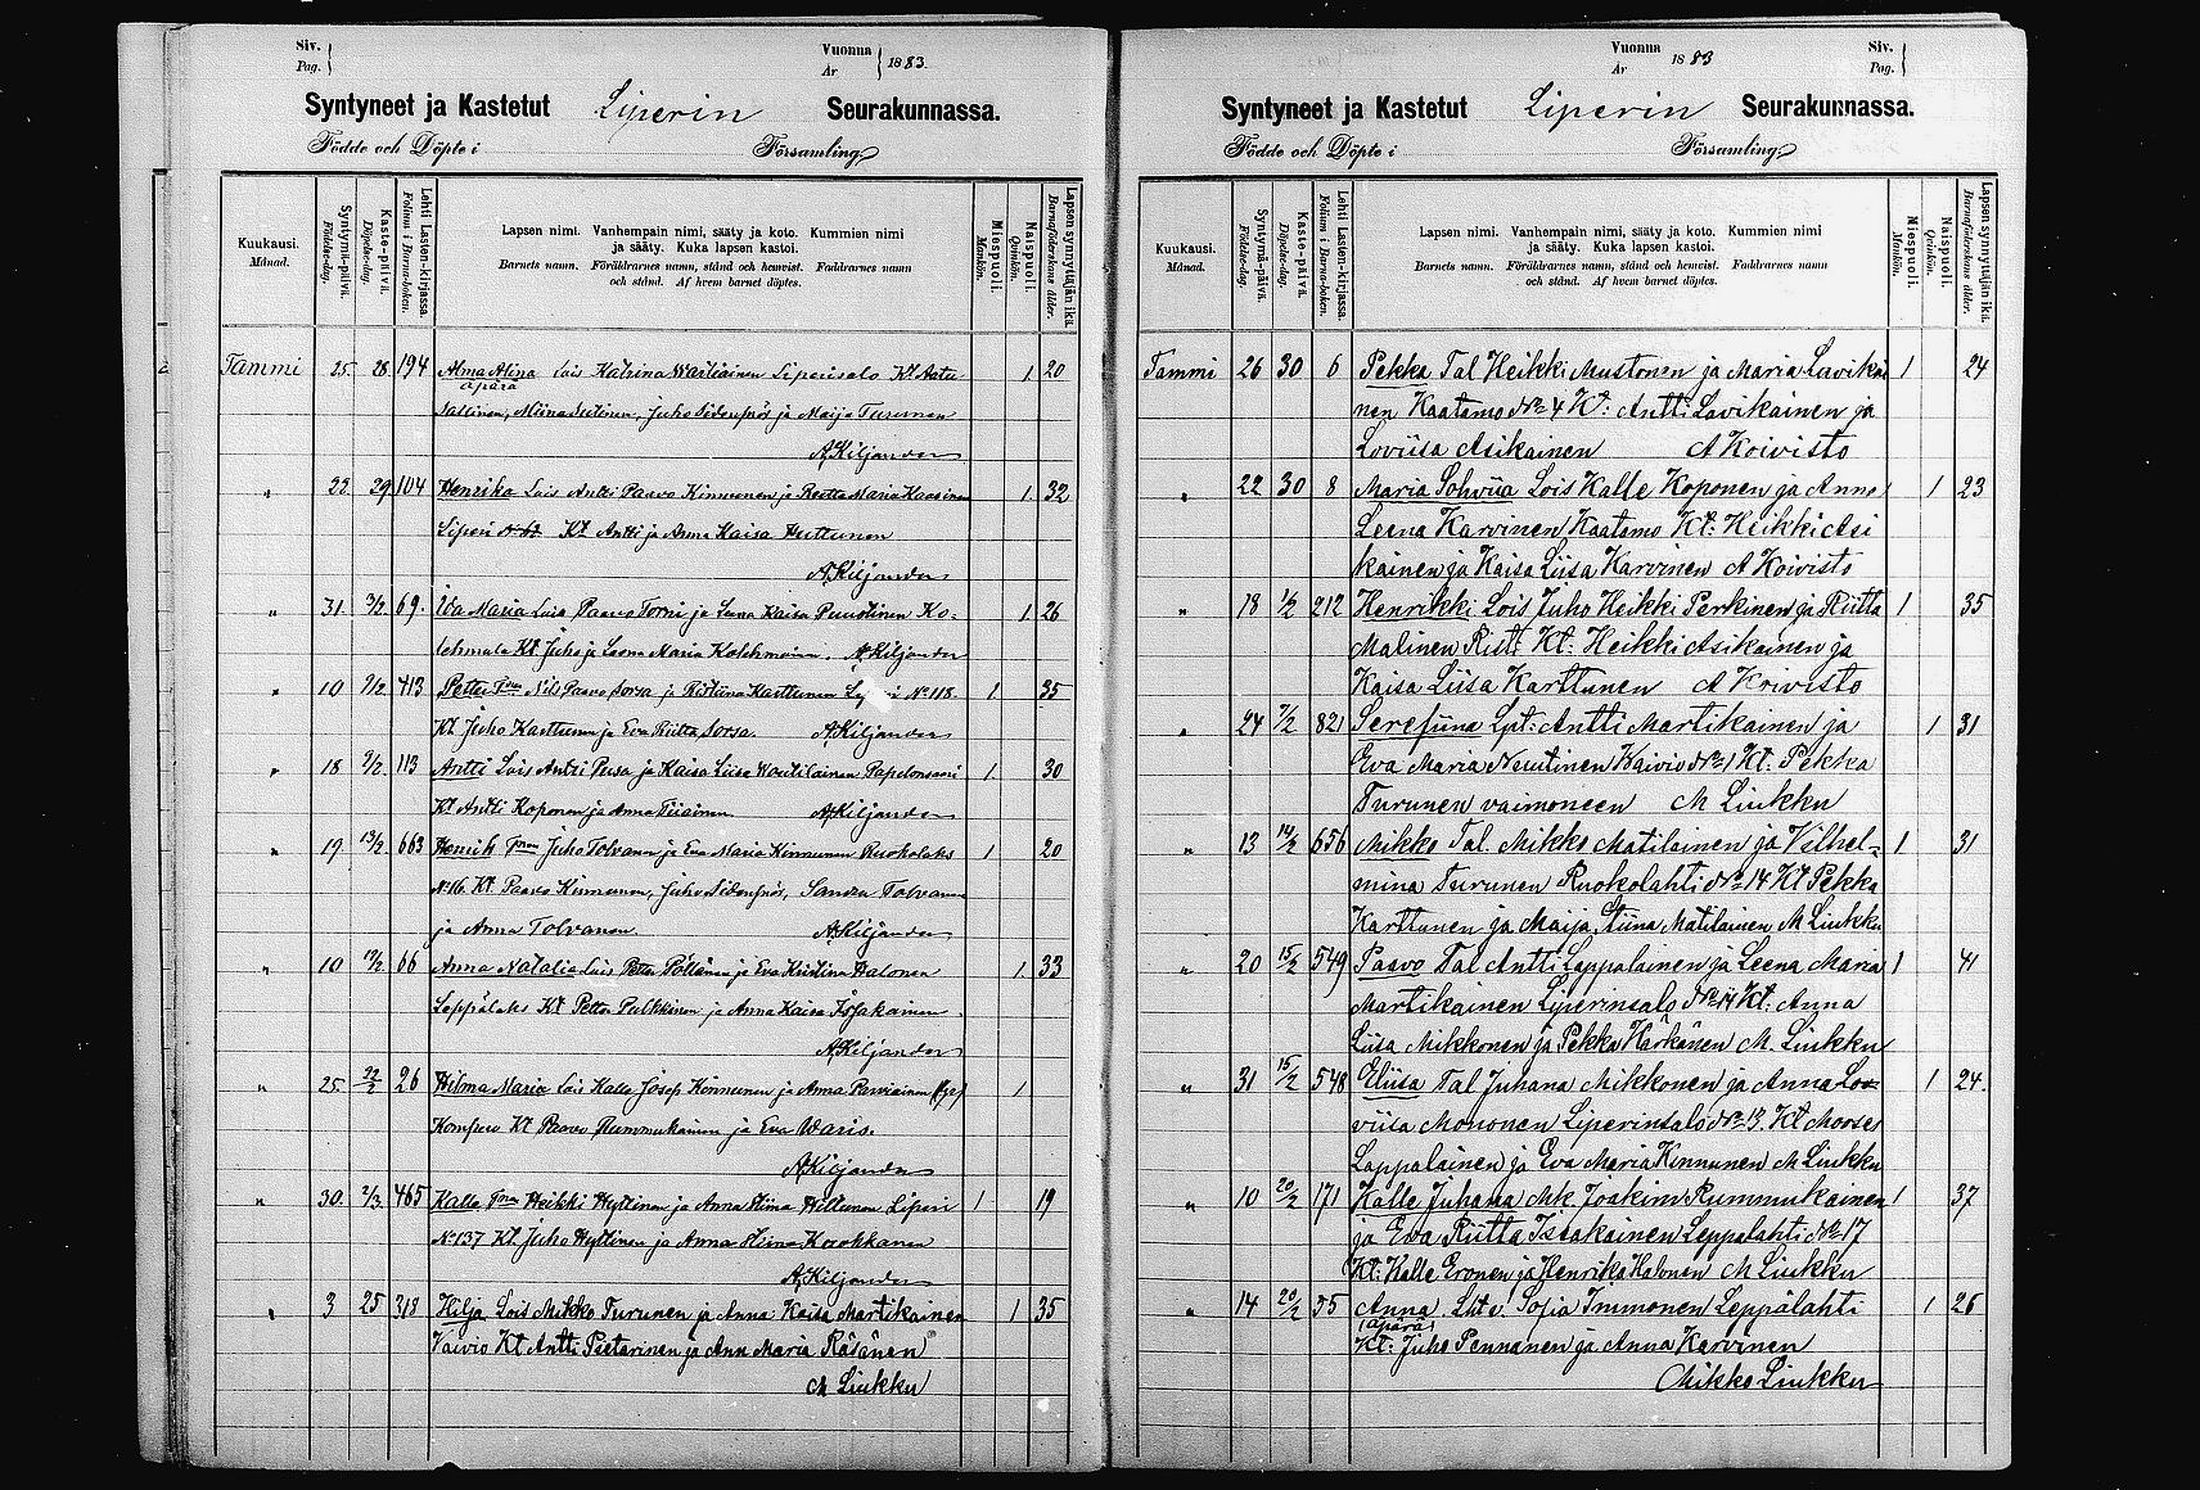 Siv.
Pag.
Vuonna
År
1883.
Syntyneet ja Kastetut Liperin Seurakunnassa.
Födde och Döpte i Församling.
Kuukausi.
Månad.
Syntymä-päivä.
Födelse-dag.
Kaste-päivä.
Döpelse-dag.
Lehti Lasten-kirjassa.
Folium i Barna-boken.
Lapsen nimi. Vanhempain nimi, sääty ja koto. Kummien nimi
ja sääty. Kuka lapsen kastoi.
Barnets namn. Föräldrarnes namn, stånd och hemvist. Faddrarnes namn
och stånd. Af hvem barnet döptes.
Miespuoli.
Mankön.
Naispuoli.
Qvinkön.
Lapsen synnyttäjän ikä.
Barnaföderskans ålder.
Tammi 25 28. 194 Alma Alina Lois Katrina Wartiainen Liperisalo Kt Aatu 1. 20
apärä
Nallinen, Miina Nutinen, Juho Sidensnör ja Maija Turunen
A. Kiljander
" 22. 29 104 Henrika Lois Antti Paavo Kinnunen ja Reitta Maria Kaasinen 1. 32
Liperi Kt Antti ja Anna Kaisa Huttunen
A. Kiljander
" 31. 3/2 69. Ida Maria Lois Paavo Torni ja Leena Kaisa Puustinen Ko= 1. 26
lehmala Kt Juho ja Leena Maria Kolehmainen. A. Kiljander
" 10 9/2 413 Petter Nils Paavo Sorsa ja Ristiina Karttunen Liperi No 118. 1. 35
Kt Juho Karttunen ja Eva Riitta Sorsa. A. Kiljander
" 18 9/2. 113 Antti Lois Antti Pusa ja Kaisa Liisa Woutilainen Papelonsaari 1. 30
Kt Antti Koponen ja Anna Tiiainen. A. Kiljander
" 19 13/2. 663 Henrik Juho Tolvanen ja Eva Maria Kinnunen Ruokolaks 1 20
No 16. Kt Paavo Kinnunen, Juho Sidensnör, Sandra Tolvanen
ja Anna Tolvanen. A. Kiljander
" 10 19/2. 66 Anna Natalia Lois Petter Pöllänen ja Eva Kristina Halonen 1. 33
Leppälaks Kt Petter Pulkkinen ja Anna Kaisa Issakainen.
A. Kiljander
" 25. 22/2 26 Hilma Maria Lois Kalle Josep Kinnunen ja Anna Parviainen 1
Komperо Kt Paavo Rummukainen ja Eva Waris.
A. Kiljander
" 30. 2/3. 465 Kalle Heikki Hyttinen ja Anna Stiina Hiltunen Liperi 1 19
No 137 Kt. Juho Hyttinen ja Anna Stiina Korokkanen
A. Kiljander
" 3 25 318 Hilja Lois Mikko Turunen ja Anna Kaisa Martikainen 1 35
Vaivio Kt Antti Pietarinen ja Ann Maria Räsänen
M Liukku
Vuonna
År
1883
Siv.
Pag.
Syntyneet ja Kastetut Liperin Seurakunnassa.
Födde och Döpte i Församling.
Kuukausi.
Månad.
Syntymä-päivä.
Födelse-dag.
Kaste-päivä.
Döpelse-dag.
Lehti Lasten-kirjassa.
Folium i Barna-boken.
Lapsen nimi. Vanhempain nimi, sääty ja koto. Kummien nimi
ja sääty. Kuka lapsen kastoi.
Barnets namn. Föräldrarnes namn, stånd och hemvist. Faddrarnes namn
och stånd. Af hvem barnet döptes.
Miespuoli.
Mankön.
Naispuoli.
Qvinkön.
Lapsen synnyttäjän ikä.
Barnaföderskans ålder.
Tammi 26 30 6 Pekka Tal Heikki Mustonen ja Maria Lavikai 1 24
nen Kaatamo No 4 Kt: Antti Lavikainen ja
Loviisa Asikainen A Koivisto
" 22 30 8 Maria Sohviia Lois Kalle Koponen ja Anna 1 23
Leena Karvinen Kaatamo Kt: Heikki Asi
kainen ja Kaisa Liisa Karvinen A Koivisto
" 18 1/2 212 Henrikki Lois Juho Heikki Perkinen ja Riitta 1 35
Malinen Rist: Kt: Heikki Asikainen ja
Kaisa Liisa Karttunen A Koivisto
" 24 7/2 821 Serefiina Lpt: Antti Martikainen ja 1 31
Eva Maria Nuutinen Vaivio No 1 Kt: Pekka
Turunen vaimoneen M Liukku
" 13 14/2 656 Mikko Tal. Mikko Matilainen ja Vilhel= 1 31
mina Turunen Ruokolahti No 14 Kt Pekka
Karttunen ja Maija Stiina Matilainen M Liukku
" 20 15/2 549 Paavo Tal Antti Lappalainen ja Leena Maria 1 41
Martikainen Liperinsalo No 14 Kt: Anna
Liisa Mikkonen ja Pekka Härkänen M. Liukku
" 31 15/2 548 Eliisa Tal Juhana Mikkonen ja Anna Lo 1 24.
viisa Mononen Liperinsalo No 13. Kt Mooses
Lappalainen ja Eva Maria Kinnunen M Liukku
" 10 20/2 171 Kalle Juhana Mk. Joakim Rummukainen 1 37
ja Eva Riitta Issakainen Leppälahti No 17
Kt: Kalle Eronen ja Henrika Halonen M Liukku
" 14 20/2 55 Anna Lht v. Sofia Immonen Leppälahti 1 26
(apärä)
Kt: Juho Pennanen ja Anna Karvinen
Mikko Liukku